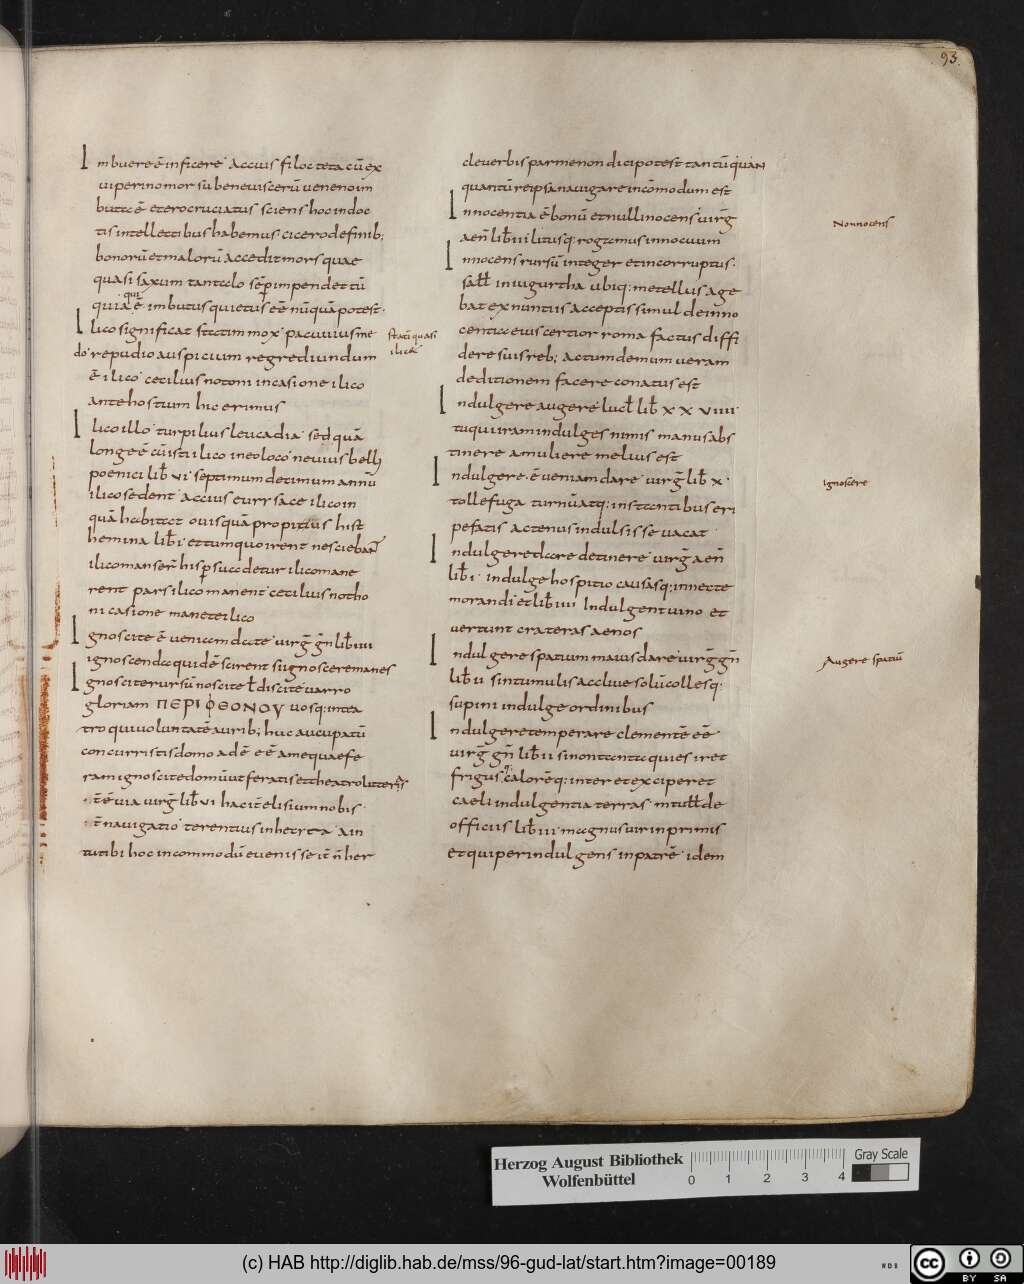 93.
Imbuere ē inficere Accius filocteta cū ex
uiperino morsū bene uiscerū uenenoim
buta ē et ero cruciatus sciens hoc indoc
tis intellectibus habemus cicero definib;
bonorū et malorū Accedit mors quae
quasi saxum tantalo sēp impendet tū
quia ē imbutus quietus eē nūquā potest.
qui
Ilico significat statim mox pacuuius me
do repudio auspicium regrediundum
ē ilico cecilius notoni incasione ilico
ante hostium hic erimus
statī quasi
ilico
Ilico illo turpilius leucadia sed quā
longe ē cū isti ilico in eo loco neuius belli
poenici lib̄ vi septimum decimum annū
ilico sedent accius eurrsace ilico in
quā habitat ouis quā propitius hist
hemina lib̄ i et tum quo irent nesciebant
ilico manser̄ hisp succdetur ilico mane
rent pars ilico manent cecilius notho
nicasione manete ilico
Ignoscite ē ueniam date uirḡ ḡn lib̄ iiii
ignoscenda quidē scirent si ignoscere manes
Ignoscite rursū noscite t̄ discite uarro
gloriam ΠΕΡΙ ΦΘΟΝΟΥ uosq: intea
tro qui uoluntatē aurib; huc aucupatū
concurristis domo adē eē amequae fe
ram ignoscite domū ut feratis e theatro litteris
t̄ ē uia uirḡ lib̄ vi hac it̄ elisium nobis
t̄ nauigatio terentius in hecyra ain
tu tibi hoc incommodū euenisse it̄ n̄ her
cle uerbis parmenon dici potest tantū quan
quantū reipsa nauigare incōmodum est
Innocentia ē bonū et nulli nocens uirḡ
aen̄ lib̄ iii litusq: rogamus innocuum
Nonnocens
Innocens rursū integer et incorruptus.
sall̄ iniugurtha ubiq: metellus age
bat ex nuntiis acceptis simul deinno
centia eius certior roma factus diffi
dere suis reb; actum demum ueram
deditionem facere conatus est
Indulgere augere lucl̄ lib̄ x x viiii
tu qui iram indulges nimis manus abs
tinere a muliere melius est
Indulgere ē ueniam dare uirḡ lib̄ x
tolle fuga turnū atq: instantibus eri
pe fatis actenus indulsisse uacat
ignoscere
Indulgere dare detinere uirḡ aen̄
lib̄ i indulge hospitio causasq: innecte
morandi et lib̄ iiii Indulgent uino et
uertunt crateras aenos
Indulgere spatium maius dare uirḡ ḡn
lib̄ ii sin tumulis accliue solū collesq:
supini indulge ordinibus
Augere spatiū
Indulgere temperare clementē eē
uirḡ ḡn lib̄ ii si non tanta quies iret
frigusq; calorēq: inter et exciperet
caeli indulgentia terras m tull̄ de
officiis lib̄ iii magnus uir in primis
et qui perindulgens in patrē idem
Herzog August Bibliothek
Wolfenbüttel
0 1 2 3 4
Gray Scale
(c) HAB http://diglib.hab.de/mss/96-gud-lat/start.htm?image=00189
WDB
cc BY SA